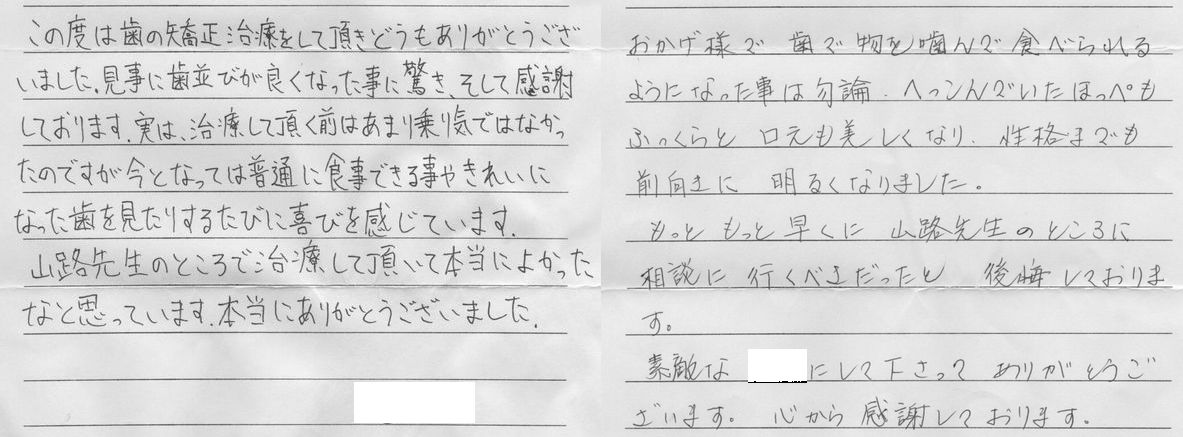 この度は歯の矯正治療をして頂きどうもありがとうござ
いました。見事に歯並びが良くなった事に驚き、そして感謝
しております。実は、治療して頂く前はあまり乗り気ではなかっ
たのですが今となっては普通に食事できる事やきれいに
なった歯を見たりするたびに喜びを感じています。
山路先生のところで治療して頂いて本当によかった
なと思っています。本当にありがとうございました。
おかげ様で 歯で 物を噛んで食べられる
ようになった事は勿論、へっこんでいたほっぺも
ふっくらと 口元も美しくなり、性格までも
前向きに 明るくなりました。
もっと もっと早くに 山路先生のところに
相談に 行くべきだったと 後悔しておりま
す。
素敵な にして下さって ありがとうご
ざいます。 心から 感謝しております。